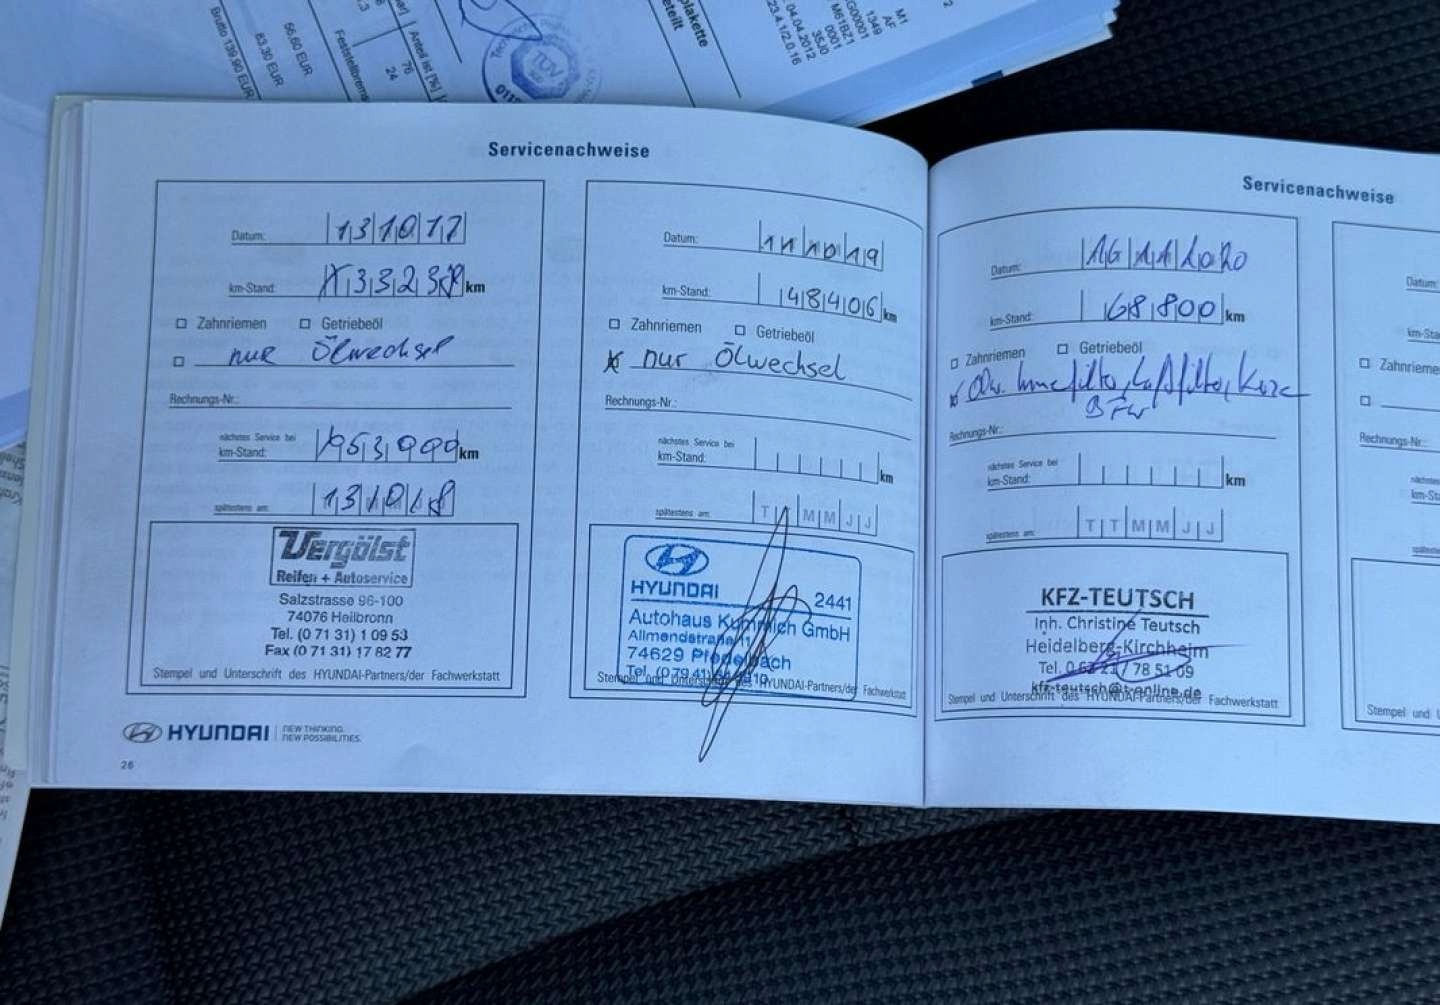 plakette
efeilt
M1
AF
1349
G00001
M61BZ1
35J0
0001
04.04.2012
Anteil ist [%]
76
24
Feststellbrems
56,60 EUR
83,30 EUR
Brutto 139,90 EUR
TÜV
Servicenachweise
Datum: 13 10 17
km-Stand: km
Zahnriemen Getriebeöl
nur Ölwechsel
Rechnungs-Nr.:
nächstes Service bei
km-Stand: km
spätestens am: 13 10 18
Vergölst
Reifen + Autoservice
Salzstrasse 96-100
74076 Heilbronn
Tel. (0 71 31) 1 09 53
Fax (0 71 31) 17 82 77
Stempel und Unterschrift des HYUNDAI-Partners/der Fachwerkstatt
HYUNDAI NEW THINKING.
NEW POSSIBILITIES.
26
Datum: 11 10 19
km-Stand: 148406 km
Zahnriemen Getriebeöl
x nur Ölwechsel
Rechnungs-Nr.:
nächstes Service bei
km-Stand: km
spätestens am: T M M J J
HYUNDAI
2441
Autohaus Kummich GmbH
Allmendstraße 11
74629 Pfedelbach
Tel. (0 79 41)
Stempel und Unterschrift des HYUNDAI-Partners/der Fachwerkstatt
Servicenachweise
Datum: 16 11 2020
km-Stand: 168800 km
Zahnriemen Getriebeöl
x Luftfilter,
Rechnungs-Nr.:
nächstes Service bei
km-Stand: km
spätestens am: T T M M J J
KFZ-TEUTSCH
Inh. Christine Teutsch
Heidelberg-Kirchheim
Tel. 0 62 21 / 78 51 09
kfz-teutsch@t-online.de
Stempel und Unterschrift des HYUNDAI-Partners/der Fachwerkstatt
Datum:
km-Sta
Zahnrieme
Rechnungs-Nr.:
km-St
Stempel und